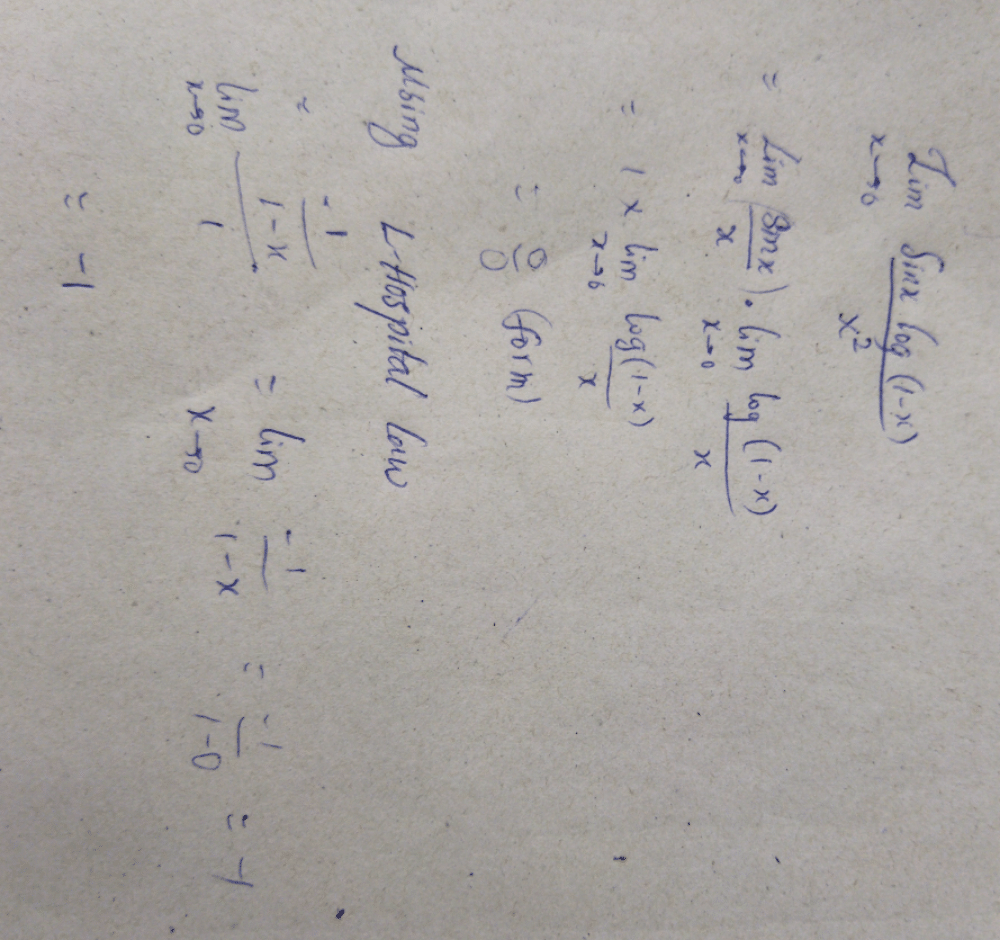 Lim x→0 sinx log(1-x) / x²
= Lim x→0 (sinx / x) . lim x→0 log(1-x) / x
= 1 × lim x→0 log(1-x) / x
= 0/0 (form)
Using L-Hospital law
= lim x→0 (-1 / 1-x) / 1 = lim x→0 -1 / 1-x = -1 / 1-0 = -1
= -1